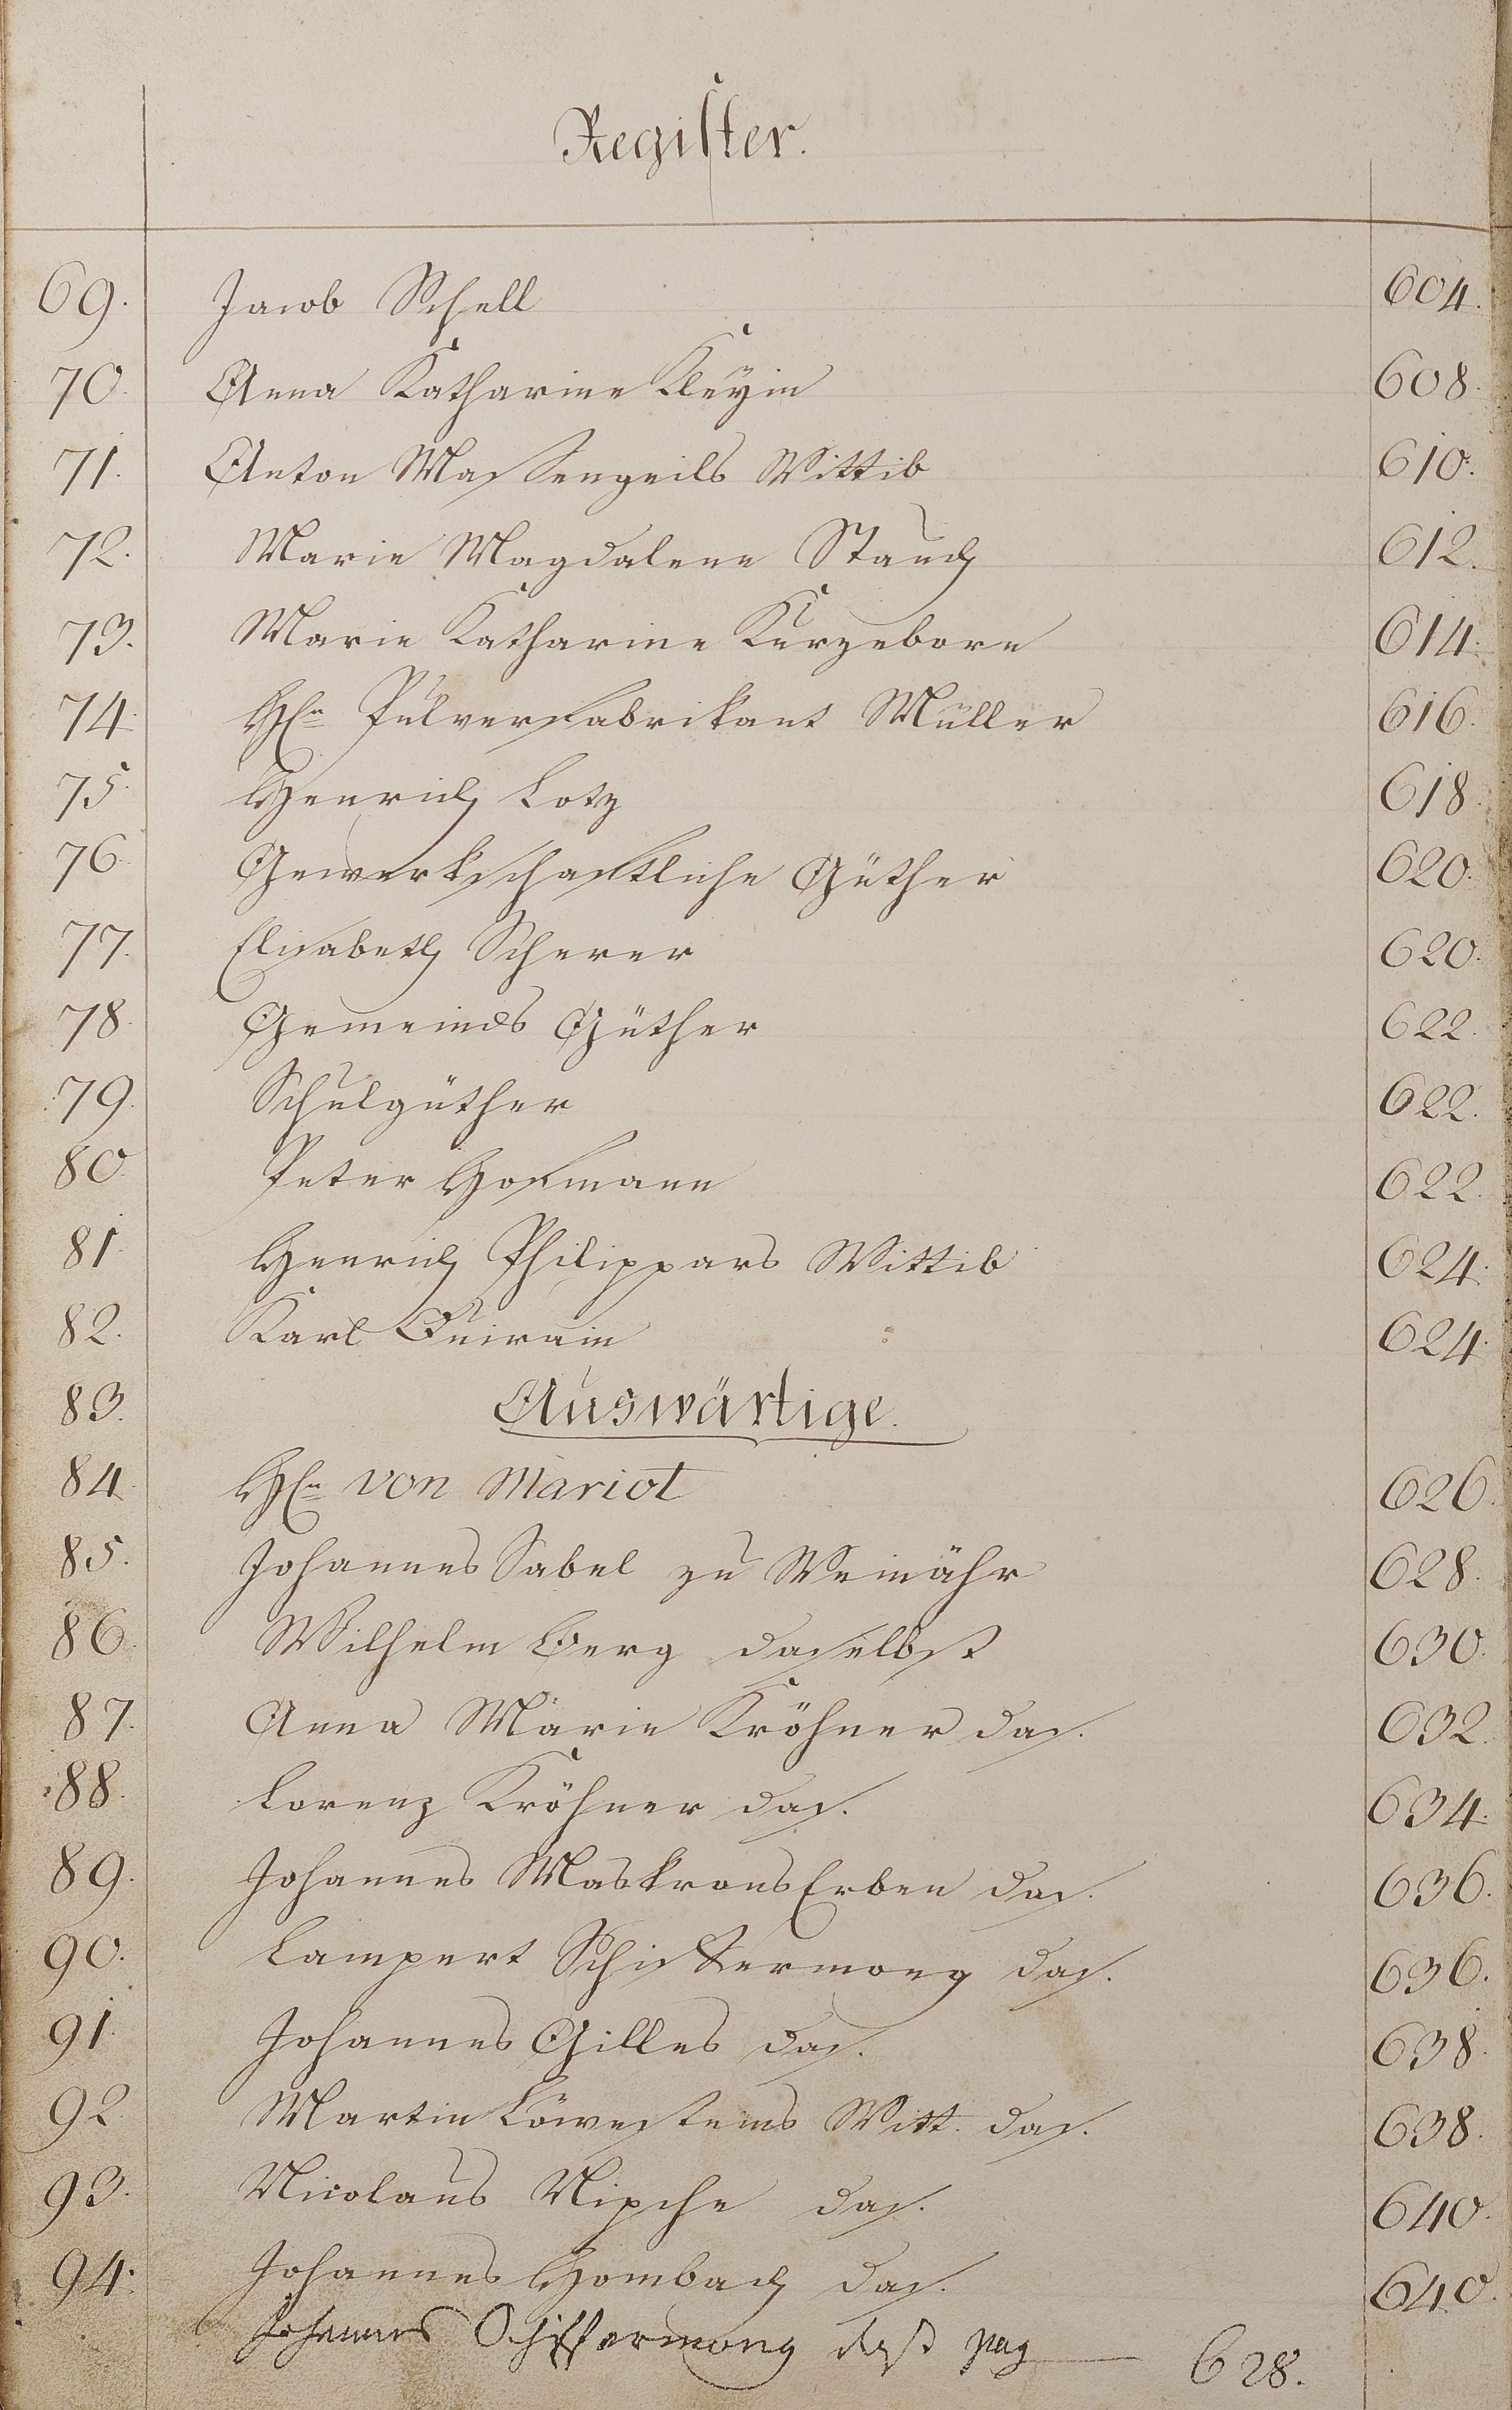 Register.
69. Jacob Schell 604.
70. Anna Katharine Kleyin 608.
71. Anton Massengeils Wittib 610.
72. Marie Magdalene Stauch 612.
73. Marie Katharine Kurzeborn 614.
74. Hℓn Pulverfabrikant Müller 616.
75. Henrich Lotz 618.
76. Gewerkschaftliche Güther 620.
77. Elisabeth Scherer 620.
78. Gemeinds Güther 622.
79. Schulgüther 622.
80. Peter Hofmann 622.
81. Henrich Philippars Wittib 624.
82. Karl Quirain 624.
83. Auswärtige.
84. Hℓn von Mariot 626.
85. Johannes Sabel zu Weinähr 628.
86. Wilhelm Berg daselbst 630.
87. Anna Marie Kröhner das. 632.
88. Lorenz Kröhner das. 634.
89. Johannes Maskrons Erben das. 636.
90. Lampert Schiffermong das. 636.
91. Johannes Gilles das. 638.
92. Martin Löwensteins Witt. das. 638.
93. Nicolaus Nipche das. 640.
94. Johannes Hombach das. 640.
Johannes Schiffermong dasst pag 628.